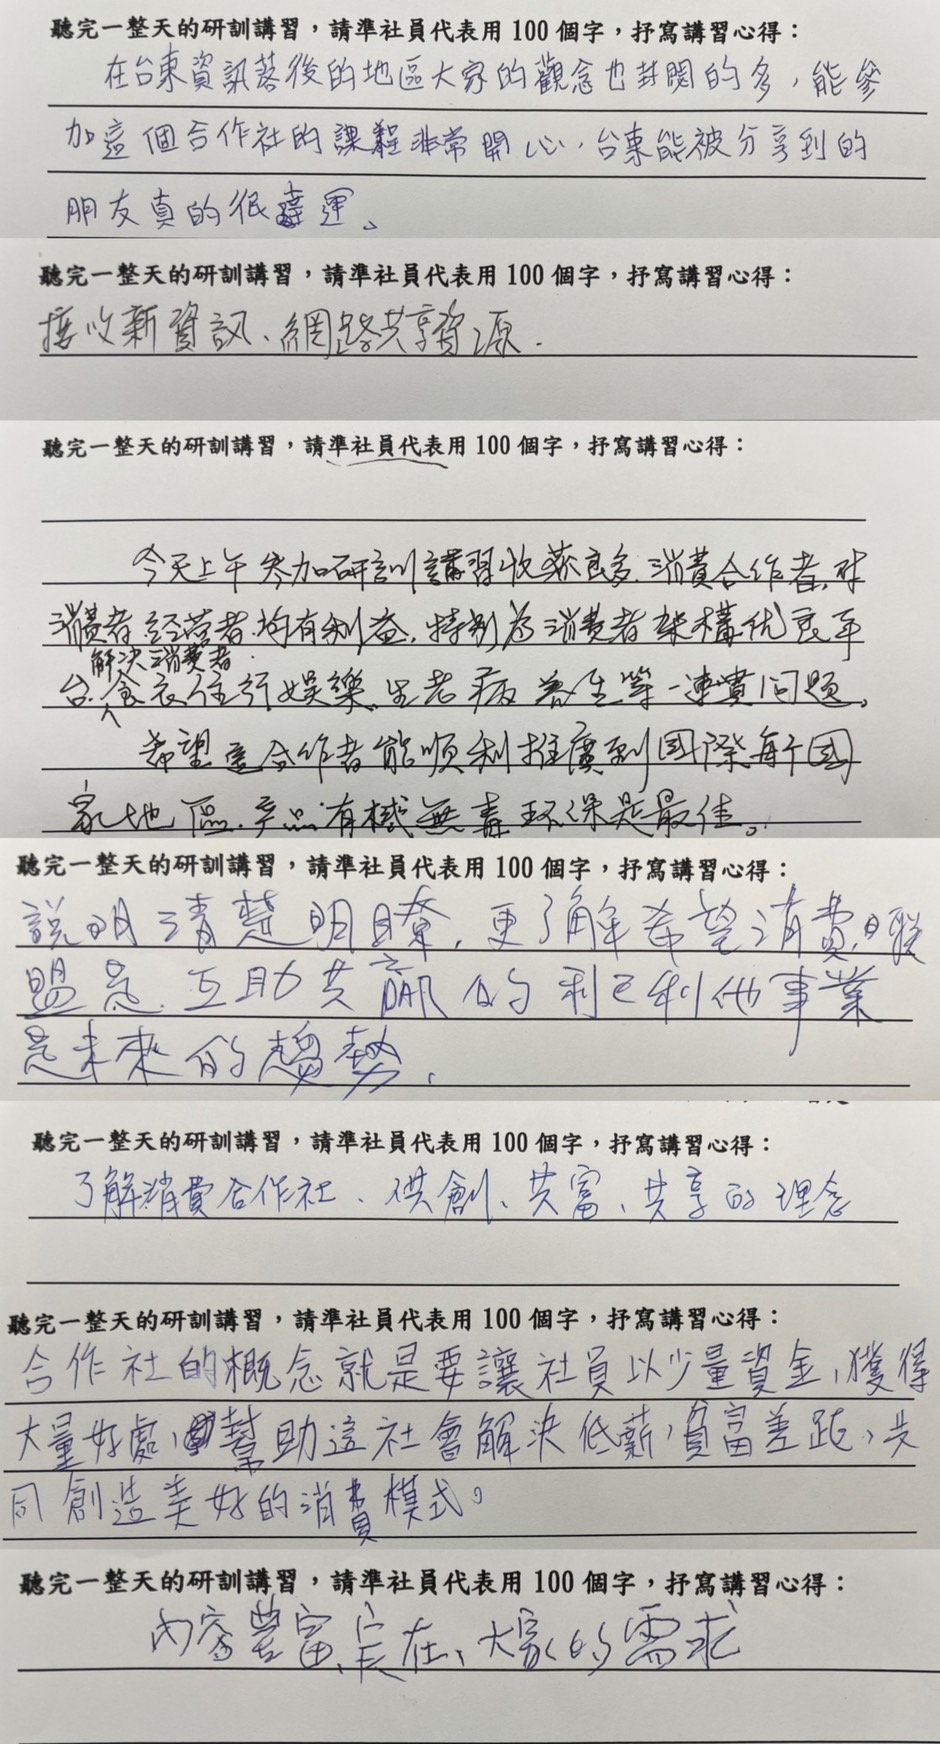 聽完一整天的研訓講習，請準社員代表用 100 個字，抒寫講習心得：
在台東資訊落後的地區大家的觀念也封閉的多，能參
加這個合作社的課程非常開心，台東能被分享到的
朋友真的很幸運、
聽完一整天的研訓講習，請準社員代表用 100 個字，抒寫講習心得：
接收新資訊、網路共享資源.
聽完一整天的研訓講習，請準社員代表用 100 個字，抒寫講習心得：
今天上午参加研訓講習收获良多.消費合作者,对
消費者 经营者.均有利益,特别為消費者架構优良平
解決消費者
台.食衣住行娛樂.生老病养生等一連貫问題。
希望 合作者能順利推廣到国際每个国
家地區.产品有机無毒环保是最佳。
聽完一整天的研訓講習，請準社員代表用 100 個字，抒寫講習心得：
說明清楚明瞭,更了解希望消費聯
盟是.互助共贏的利已利他事業
是未來的趨勢.
聽完一整天的研訓講習，請準社員代表用 100 個字，抒寫講習心得：
了解消費合作社、供創、共富、共享的理念
聽完一整天的研訓講習，請準社員代表用 100 個字，抒寫講習心得：
合作社的概念就是要讓社員以少量資金,獲得
大量好處,幫助這社會解決低薪,貧富差距,共
同創造美好的消費模式。
聽完一整天的研訓講習，請準社員代表用 100 個字，抒寫講習心得：
內容豐富、实在、大家的需求